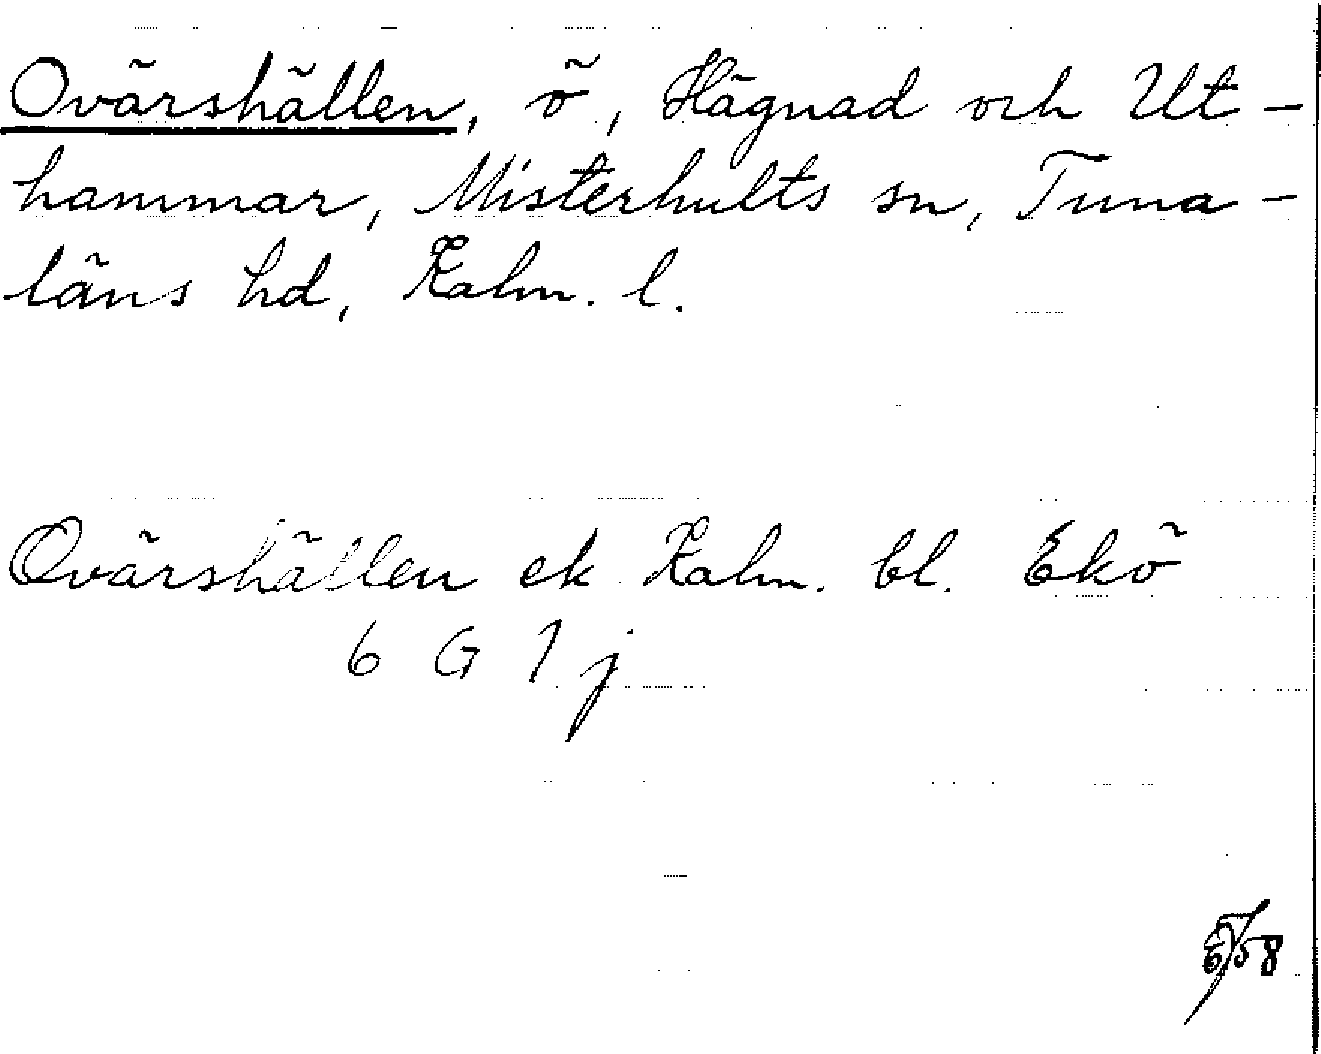 Ovärshällen, ö, Hägnad och Ut-
hammar, Misterhults sn, Tuna-
läns hd, Kalm. l.
Ovärshällen ek Kalm. bl. Ekö
6 G 1 j